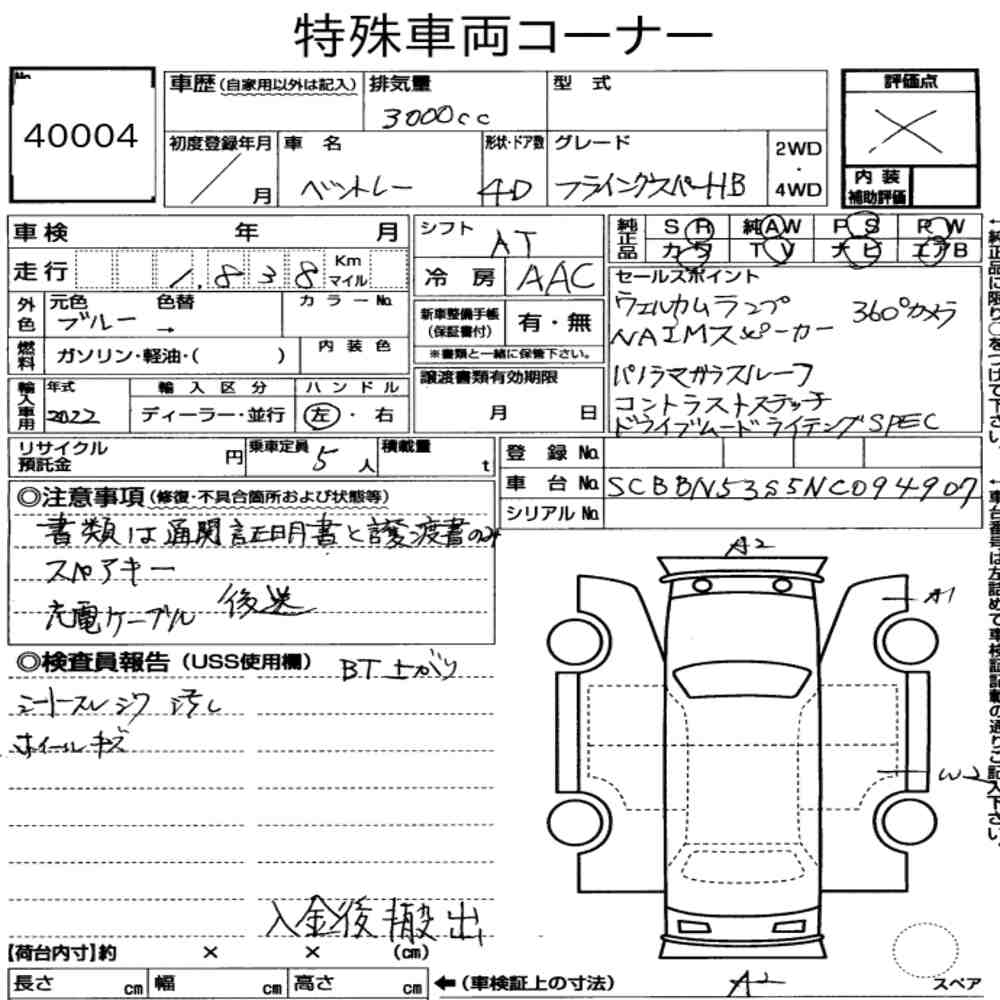 特殊車両コーナー
No.
40004
車歴(自家用以外は記入)
排気量
3000cc
型 式
評価点
初度登録年月
/ 月
車 名
ベントレー
形状・ドア数
4D
グレード
フライングスパーHB
2WD
・
4WD
内装
補助評価
車検 年 月
走行 1,838 Km マイル
シフト
AT
冷房 AAC
純正品
SR 純AW PS PW
カワ TV ナビ エアB
セールスポイント
ウェルカムランプ 360°カメラ
NAIMスピーカー
パノラマガラスルーフ
コントラストステッチ
ドライブムードライテングSPEC
外色
元色 色替 カラーNo.
ブルー →
燃料
ガソリン・軽油・( )
内装色
新車整備手帳
(保証書付)
有・無
※書類と一緒に保管下さい。
輸入車用
年式
2022
輸入区分
ディーラー・並行
ハンドル
左・右
譲渡書類有効期限
月 日
リサイクル
預託金
円
乗車定員
5人
積載量
t
登録No.
車台No. SCBBN53S5NC094907
シリアルNo.
◎注意事項(修復・不具合箇所および状態等)
書類は通関証明書と譲渡書のみ
スペアキー
充電ケーブル 後送
◎検査員報告(USS使用欄)
BT上がり
シートスレ シワ 汚レ
ホイールキズ
入金後搬出
A2
A1
W2
A2
スペア
【荷台内寸】約 × × (cm)
長さ cm 幅 cm 高さ cm
←(車検証上の寸法)
←純正品に限り○をつけて下さい。
←車台番号は左詰めで車検証記載の通りご記入下さい。